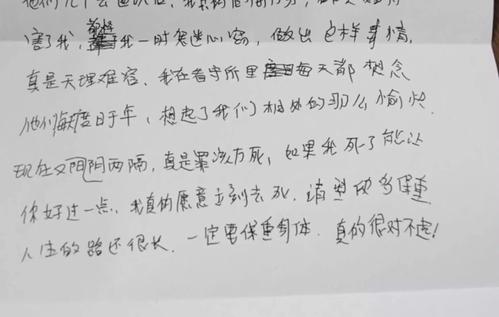 害了我，我一时鬼迷心窍，做出这样事情，
真是天理难容、我在看守所里每天都想念
他们每度日于年，想起了我们相处的那么愉快
现在又阴阳两隔，真是罪该万死，如果我死了能让
你好过一点、我真的愿意立刻去死、请 多保重
人生的路还很长、一定要保重身体、真的很对不起！